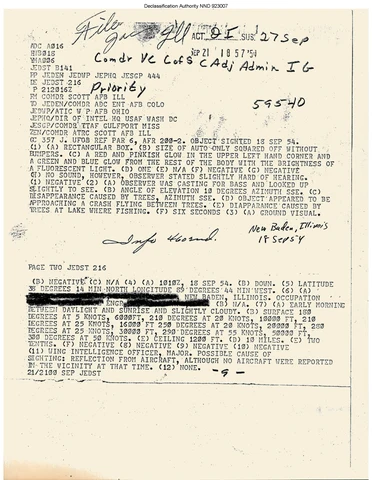 Declassification Authority NND 923007
File
ACT. DI SUS. 27 Sep
SEP 21 18 57 '54
Comdr Vc CofS C Adj Admin IG
ADC A016
HNB018
YMA006
JEDST B141
PP JEDEN JEDWP JEPHQ JESCP 444
DE JEDST 216
P 212016Z
Priority
59540
FM COMDR SCOTT AFB ILL
TO JEDEN/COMDR ADC ENT AFB COLO
JEDWP/ATIC W P AFB OHIO
JEPHQ/DIR OF INTEL HQ USAF WASH DC
JESCP/COMDR TTAF GULFPORT MISS
ZEN/COMDR ATRC SCOTT AFB ILL
OC 357 J. UFOB REF PAR 6, AFR 200-2. OBJECT SIGHTED 18 SEP 54.
(1) (A) RECTANGULAR BOX. (B) SIZE OF AUTO-ONLY SQUARED OFF WITHOUT
BUMPERS. (C) A RED AND PINKISH GLOW IN THE UPPER LEFT HAND CORNER AND
A GREEN AND BLUE GLOW FROM THE REST OF THE BODY WITH THE BRIGHTNESS OF
A FLUORESCENT LIGHT. (D) ONE (E) N/A (F) NEGATIVE (G) NEGATIVE
(H) NO SOUND, HOWEVER, OBSERVER STATED SLIGHTLY HARD OF HEARING.
(I) NEGATIVE (2) (A) OBSERVER WAS CASTING FOR BASS AND LOOKED UP
SLIGHTLY TO SEE. (B) ANGLE OF ELEVATION 10 DEGREES AZIMUTH SSE. (C)
DISAPPEARANCE CAUSED BY TREES, AZIMUTH SSE. (D) OBJECT APPEARED TO BE
APPROACHING A CRASH FLYING BETWEEN TREES. (E) DISAPPEARANCE CAUSED BY
TREES AT LAKE WHERE FISHING. (F) SIX SECONDS (3) (A) GROUND VISUAL.
New Baden, Illinois
18 Sep 54
Info 4602nd.
PAGE TWO JEDST 216
(B) NEGATIVE (C) N/A (4) (A) 1010Z, 18 SEP 54. (B) DOWN. (5) LATITUDE
38 DEGREES 14 MIN NORTH LONGITUDE 89 DEGREES 44 MIN WEST. (6) (A)
NEW BADEN, ILLINOIS. OCCUPATION
ENGR (B) N/A. (7) (A) EARLY MORNING
BETWEEN DAYLIGHT AND SUNRISE AND SLIGHTLY CLOUDY. (B) SURFACE 180
DEGREES AT 5 KNOTS, 6000FT, 210 DEGREES AT 20 KNOTS, 10000 FT, 210
DEGREES AT 25 KNOTS, 16000 FT 250 DEGREES AT 20 KNOTS, 20000 FT, 280
DEGREES AT 25 KNOTS, 30000 FT, 290 DEGREES AT 55 KNOTS, 50000 FT,
300 DEGREES AT 50 KNOTS. (C) CEILING 1200 FT. (D) 10 MILES. (E) TWO
TENTHS. (F) NEGATIVE (8) NEGATIVE (9) NEGATIVE (10) NEGATIVE
(11) WING INTELLIGENCE OFFICER, MAJOR. POSSIBLE CAUSE OF
SIGHTING: REFLECTION FROM AIRCRAFT, ALTHOUGH NO AIRCRAFT WERE REPORTED
IN THE VICINITY AT THAT TIME. (12) NONE. -9-
21/2100 SEP JEDST